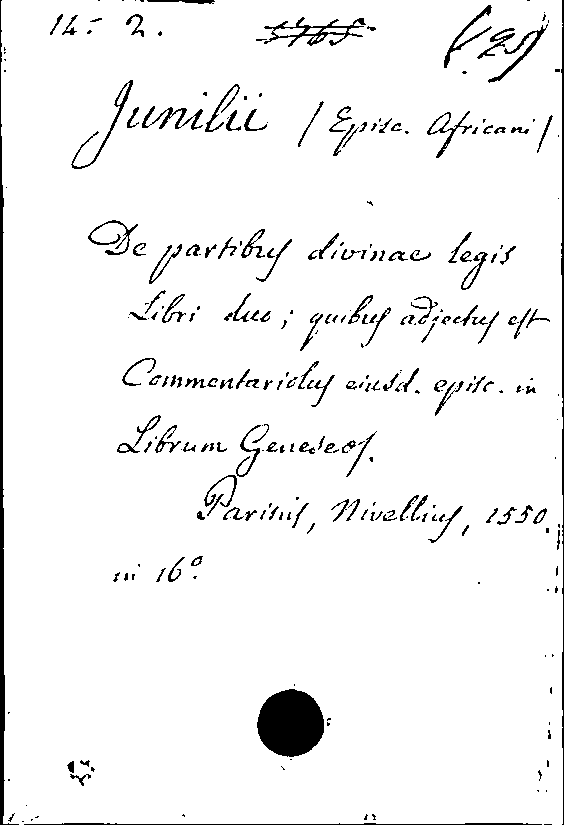 14.- 2. (25)
Junilii / Episc. Africani /
De partibus divinae legis
Libri duo; quibus adjectus est
Commentariolus eiusd. episc. in
Librum Geneseos.
Parisiis, Nivellius, 1550.
in 16º.